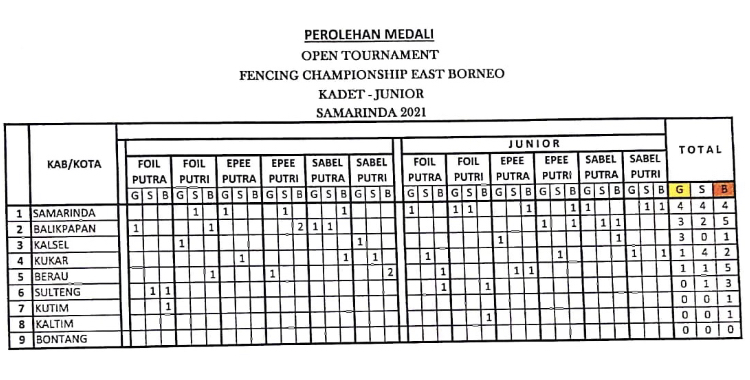 PEROLEHAN MEDALI
OPEN TOURNAMENT
FENCING CHAMPIONSHIP EAST BORNEO
KADET - JUNIOR
SAMARINDA 2021
KAB/KOTA JUNIOR TOTAL
FOIL PUTRA FOIL PUTRI EPEE PUTRA EPEE PUTRI SABEL PUTRA SABEL PUTRI FOIL PUTRA FOIL PUTRI EPEE PUTRA EPEE PUTRI SABEL PUTRA SABEL PUTRI
G S B G S B G S B G S B G S B G S B G S B G S B G S B G S B G S B G S B G S B
1 SAMARINDA 1 1 1 1 1 1 1 1 1 1 1 1 4 4 4
2 BALIKPAPAN 1 1 2 1 1 1 1 1 1 3 2 5
3 KALSEL 1 1 1 1 3 0 1
4 KUKAR 1 1 1 1 1 1 1 1 4 2
5 BERAU 1 1 2 1 1 1 1 1 5
6 SULTENG 1 1 1 1 0 1 3
7 KUTIM 1 0 0 1
8 KALTIM 1 0 0 1
9 BONTANG 0 0 0